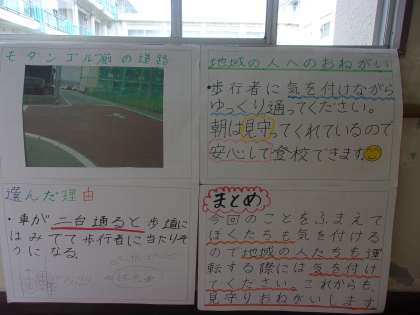 モタンゴル前の道路
地域の人へのおねがい
・歩行者に気を付けながら
ゆっくり通ってください。
朝は見守ってくれているので
安心して登校できます
選んだ理由
・車が二台通ると歩道に
はみでて歩行者に当たりそ
うになる
まとめ
今回のことをふまえて
ぼくたちも気を付ける
ので地域の人たちも運
転する際には気を付け
てください。これからも、
見守りおねがいします